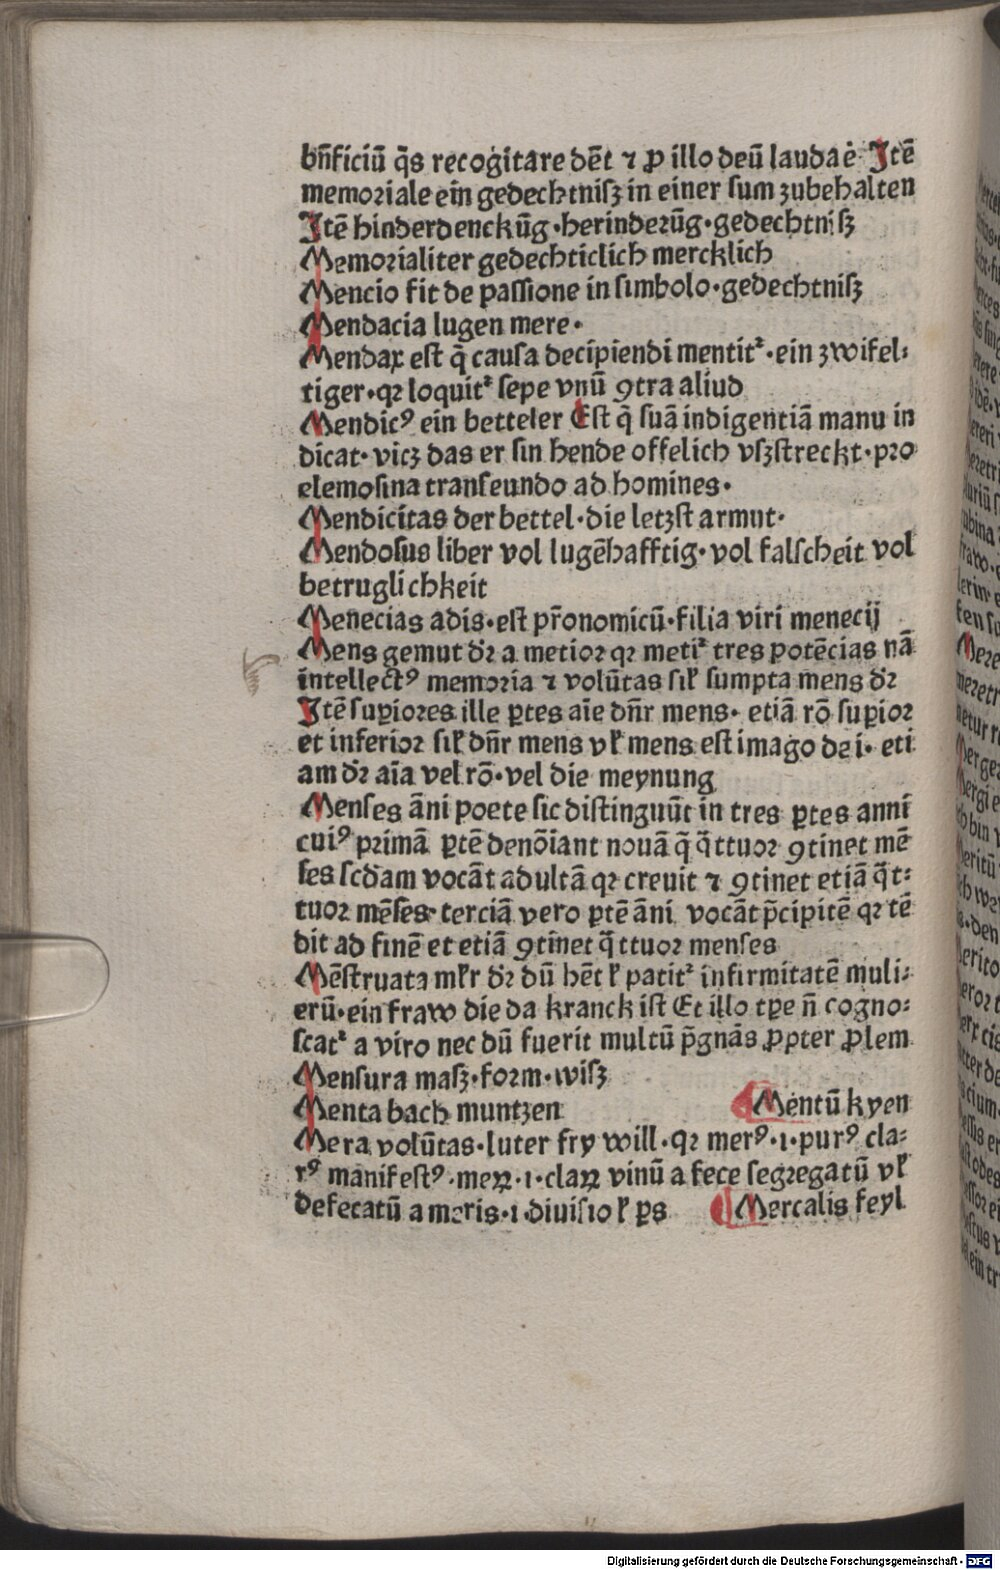 bn̄ficiū q̄s recogitare dēt ⁊ ꝓ illo deū laudaē· Jtē
memoꝛiale ein gedechtniſʒ in einer ſum zubehalten
Jtē hinderdenckūg·herinderūg·gedechtniſʒ
Memoꝛialiter gedechticlich mercklich
Mencio fit de paſſione in ſimbolo·gedechtniſʒ
Mendacia lugen mere·
Mendax eſt q̄ cauſa decipiendi mentit᷑·ein zwifel⸗
tiger·qꝛ loquit᷑ ſepe vnū ꝯtra aliud
Mendicꝰ ein betteler Eſt q̄ ſuā indigentiā manu in
dicat·vicʒ das er ſin hende offelich vſʒſtreckt·pꝛo
elemoſina tranſeundo ad homines·
Mendicitas der bettel·die letzſt armut·
Mendoſus liber vol lugēhafftig·vol falſcheit vol
betruglichkeit
Menecias adis·eſt pr̄onomicū·filia viri menecij
Mens gemut dꝛ̄ a metioꝛ qꝛ meti᷑ tres potēcias nā
intellectꝰ memoꝛia ⁊ volūtas ſil̓ ſumpta mens dꝛ̄
Jtē ſuꝑioꝛes ille ꝑtes aīe dn̄r mens· etiā rō ſuꝑioꝛ
et inferioꝛ ſil̓ dn̄r mens vl̓ mens eſt imago dei· eti
am dꝛ̄ aīa vel rō·vel die meynung
Menſes āni poete ſic diſtinguūt in tres ꝑtes anni
cuiꝰ pꝛimā ꝑtē denōiant nouā q̄ q̄ttuoꝛ ꝯtinet mē
ſes ſcd̄am vocāt adultā qꝛ creuit ⁊ ꝯtinet etiā q̄t⸗
tuoꝛ mēſes·terciā vero ꝑtē āni vocāt p̄cipitē qꝛ tē
dit ad finē et etiā ꝯtinet q̄ttuoꝛ menſes
Mēſtruata ml̓r dꝛ̄ dū hēt l̓ patit᷑ infirmitatē muli⸗
erū·ein fraw die da kranck iſt Et illo tꝑe n̄ cogno⸗
ſcat᷑ a viro nec dū fuerit multū p̄gnās ꝓpter ꝓlem
Menſura maſʒ·foꝛm·wiſʒ
Menta bach muntzen Mentū kyen
Mera volūtas·luter fry will·qꝛ merꝰ·i·purꝰ cla⸗
rꝰ manifeſtꝰ·meꝝ·i·claꝝ vinū a fece ſegregatū vl̓
defecatū a meris·i·diuiſio l̓ ꝑs Mercalis feyl
Digitalisierung gefördert durch die Deutsche Forschungsgemeinschaft - DFG